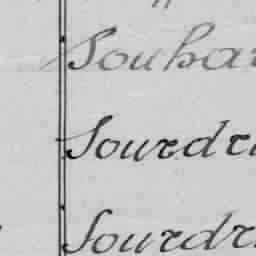 Souhar
Sourdri
Sourdr